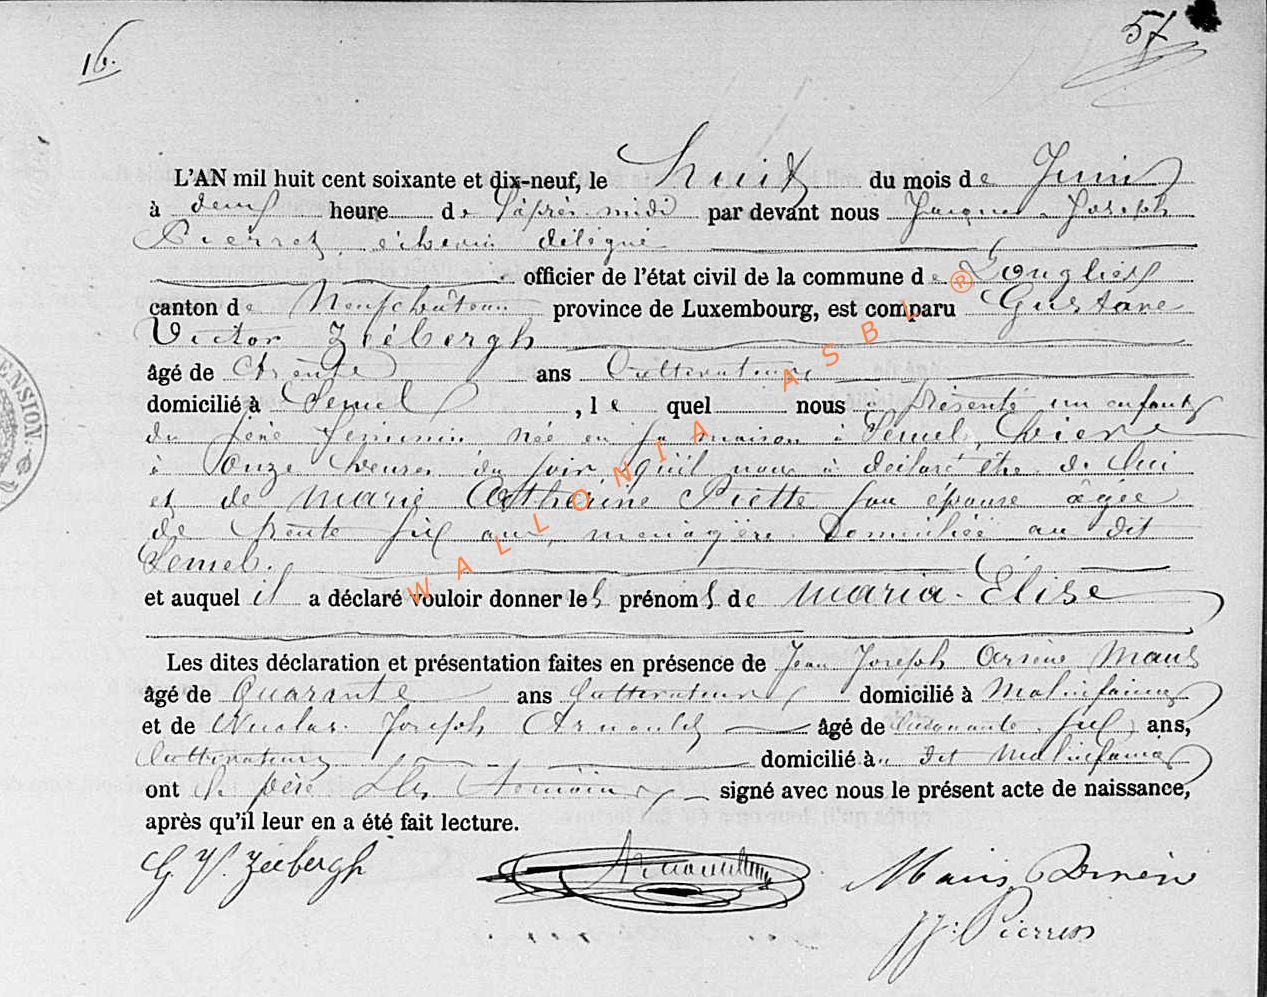 16.
57
L'AN mil huit cent soixante et dix-neuf, le huit du mois de Juin
à deux heure de l'après-midi par devant nous Jacques Joseph
Pierret échevin délégué
officier de l'état civil de la commune de Longlier
canton de Neufchâteau province de Luxembourg, est comparu Gustave
Victor Zéebergh
âgé de trente ans Cultivateur
domicilié à Semel, le quel nous a présenté un enfant
du sexe féminin née en sa maison à Semel, hier
à onze heures du soir qu'il nous à déclaré être de lui
et de Marie Catherine Piette son épouse âgée
de trente six ans, ménagère Domiciliée au dit
Semel.
et auquel il a déclaré vouloir donner les prénoms de Maria-Elise
Les dites déclaration et présentation faites en présence de Jean Joseph Arsène Maus
âgé de Quarante ans Cultivateur domicilié à Molinfaing
et de Nicolas Joseph Arnould âgé de cinquante-six ans,
Cultivateur domicilié au dit Molinfaing
ont le père & les témoins signé avec nous le présent acte de naissance,
après qu'il leur en a été fait lecture.
G V. Zéebergh Arnould
JJ: Pierret
ENSION.
WALLONIA ASBL ®